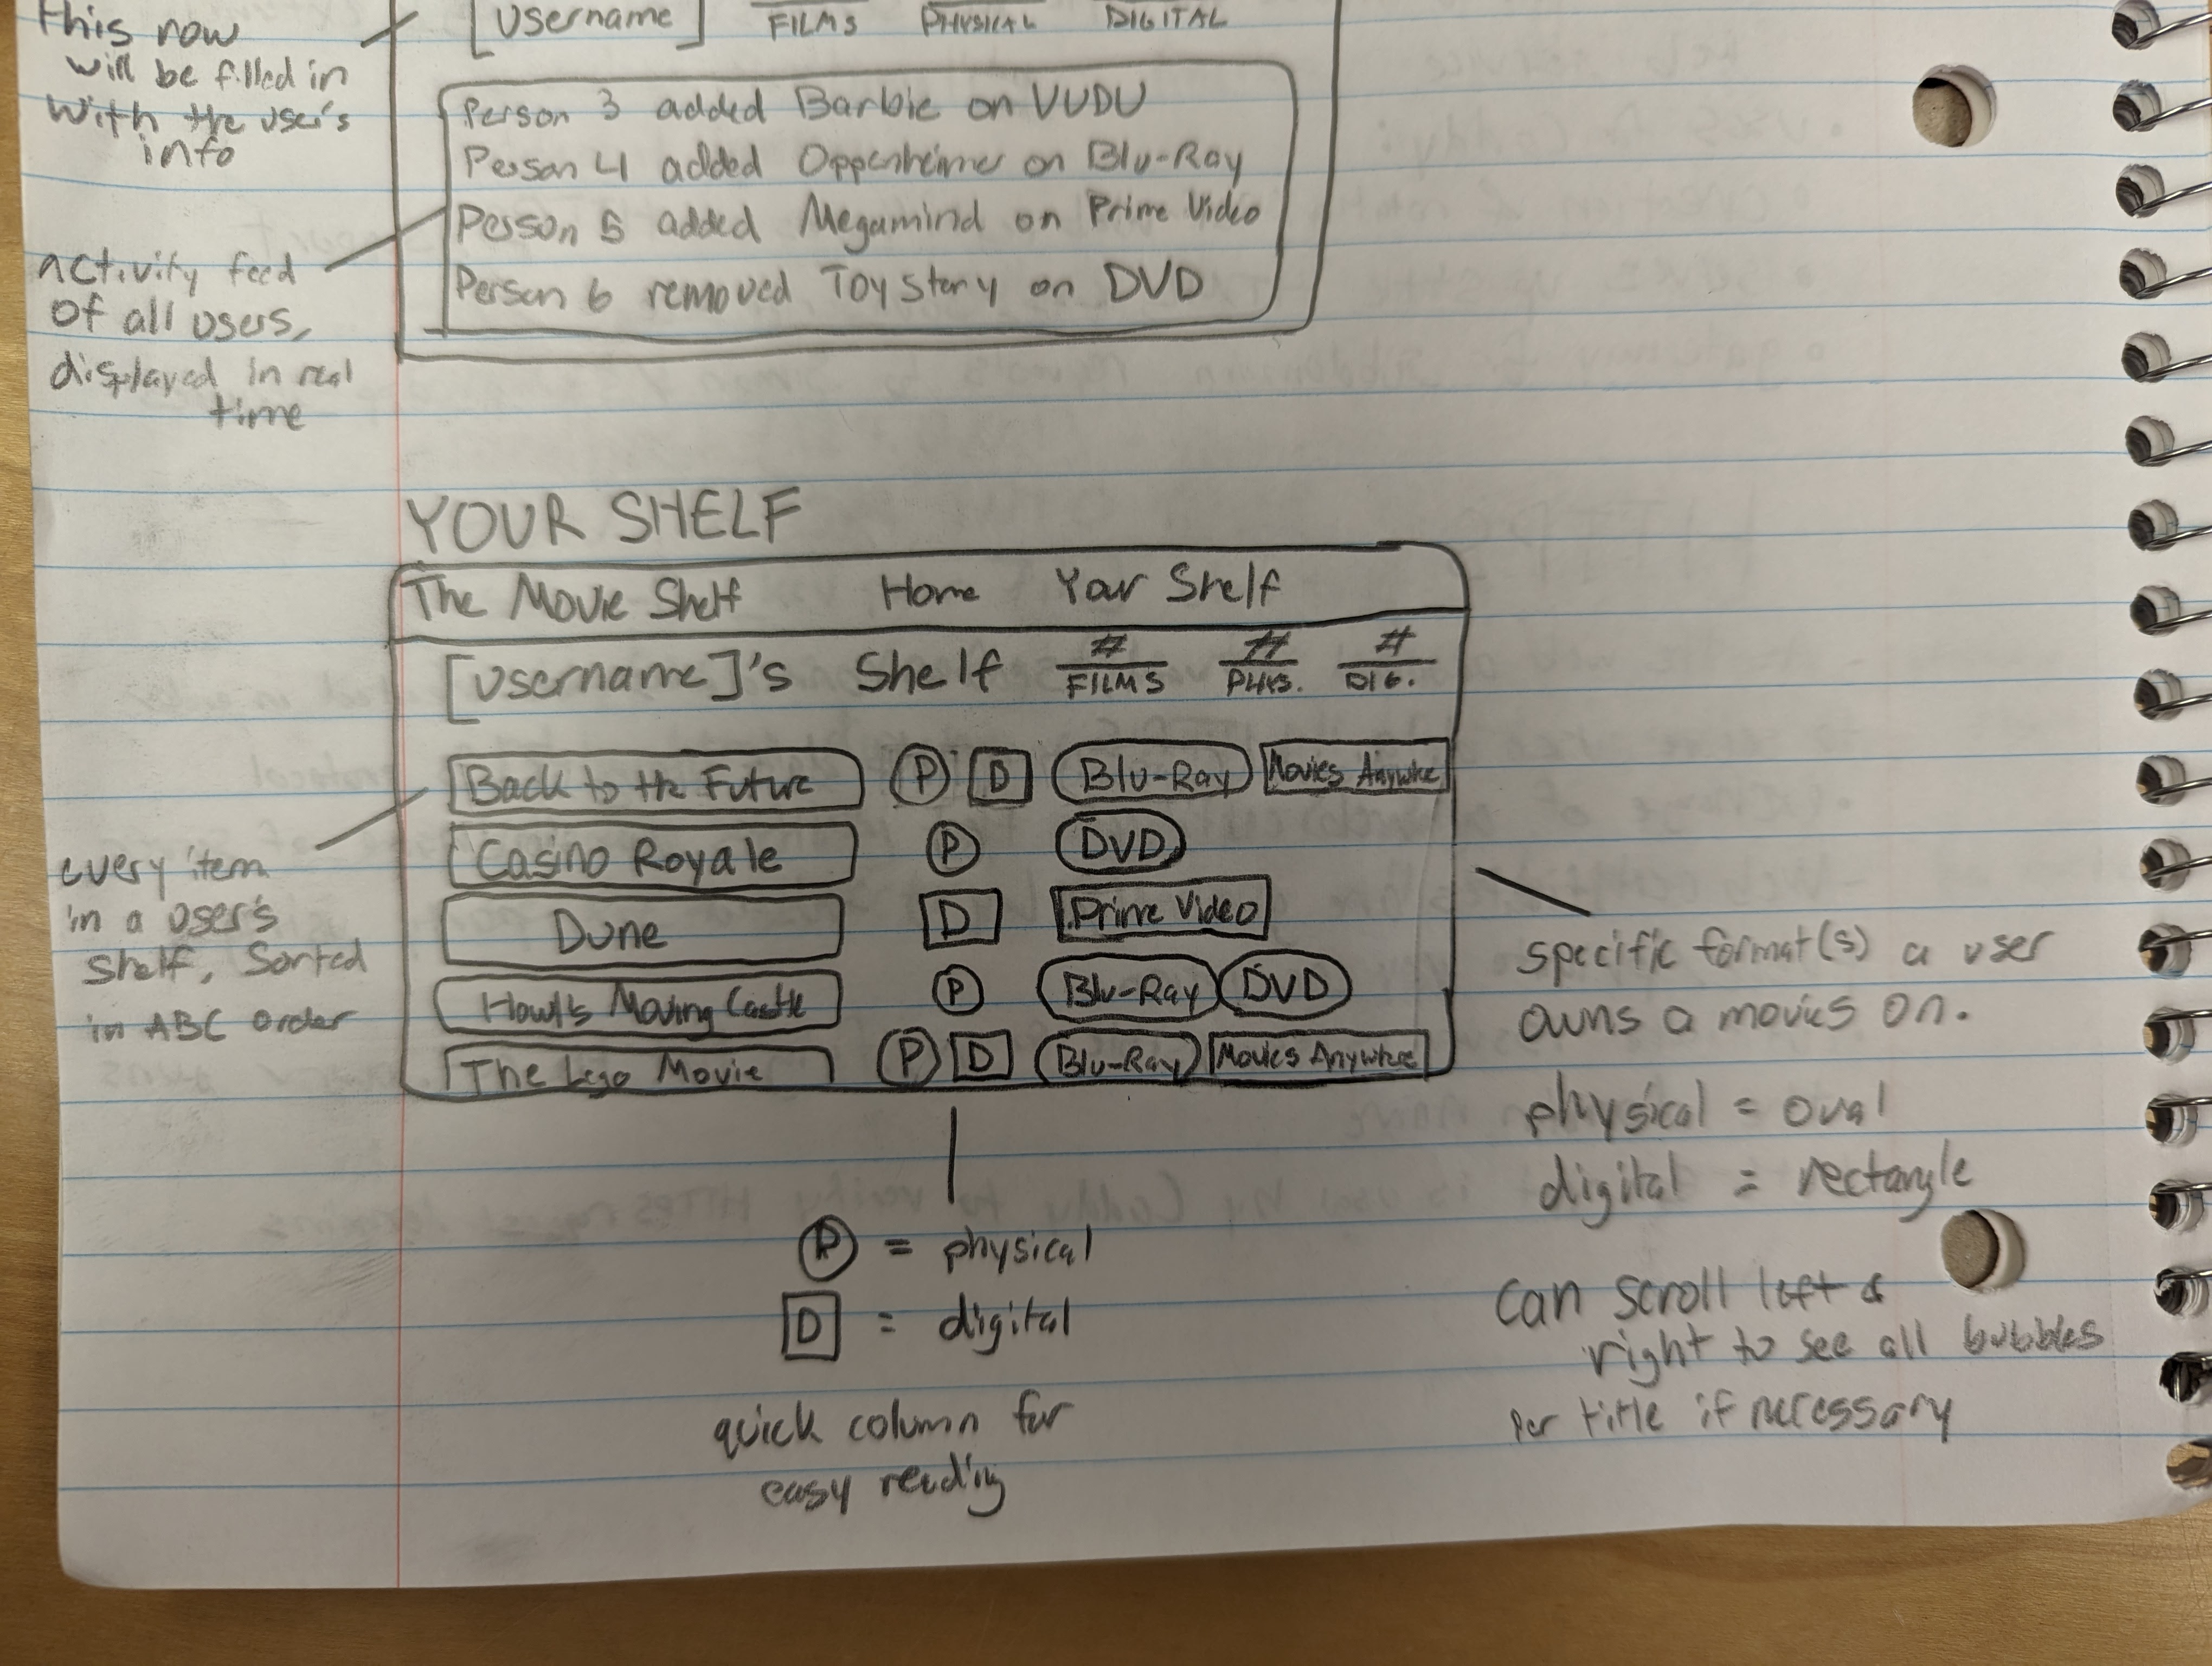 this now
will be filled in
with the user's
info
[username] FILMS PHYSICAL DIGITAL
Person 3 added Barbie on VUDU
Person 4 added Oppenheimer on Blu-Ray
Person 5 added Megamind on Prime Video
Person 6 removed Toy Story on DVD
activity feed
of all users,
displayed in real
time
YOUR SHELF
The Movie Shelf Home Your Shelf
[username]'s Shelf # FILMS # PHYS. # DIG.
Back to the Future P D Blu-Ray Movies Anywhere
Casino Royale P DVD
Dune D Prime Video
Howl's Moving Castle P Blu-Ray DVD
The Lego Movie P D Blu-Ray Movies Anywhere
every item
in a user's
shelf, sorted
in ABC order
specific format(s) a user
owns a movies on.
physical = oval
digital = rectangle
can scroll left &
right to see all bubbles
per title if necessary
P = physical
D = digital
quick column for
easy reading